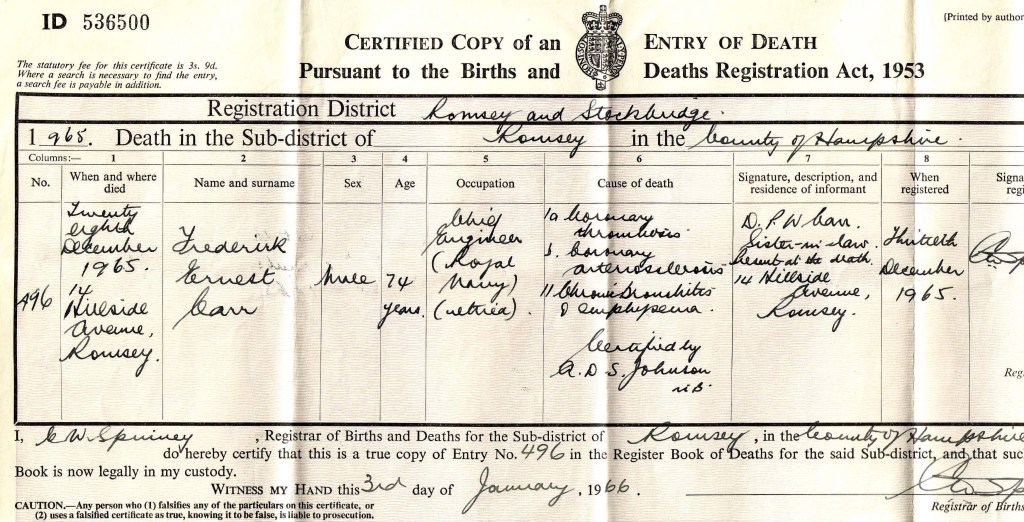 ID 536500
[Printed by author
CERTIFIED COPY of an ENTRY OF DEATH
Pursuant to the Births and Deaths Registration Act, 1953
The statutory fee for this certificate is 3s. 9d.
Where a search is necessary to find the entry,
a search fee is payable in addition.
Registration District Romsey and Stockbridge.
1965. Death in the Sub-district of Romsey in the County of Hampshire.
Columns:— 1 2 3 4 5 6 7 8
No. When and where died Name and surname Sex Age Occupation Cause of death Signature, description, and residence of informant When registered Signa
496
Twenty
eighth
December
1965.
14
Hillside
Avenue,
Romsey.
Frederick
Ernest
Carr
Male
74
years.
Chief
Engineer
(Royal
Navy)
(retired).
1a Coronary
thrombosis
b. Coronary
arteriosclerosis
11 Chronic Bronchitis
& emphysema.
Certified by
A. D. S. Johnson
M.B.
D. P. W. Carr
Sister-in-law
Present at the death
14 Hillside
Avenue,
Romsey.
Thirtieth
December
1965.
Reg
I, , Registrar of Births and Deaths for the Sub-district of Romsey, in the County of Hampshire
do hereby certify that this is a true copy of Entry No. 496 in the Register Book of Deaths for the said Sub-district, and that suc
Book is now legally in my custody.
WITNESS MY HAND this 3rd day of January, 1966.
CAUTION.—Any person who (1) falsifies any of the particulars on this certificate, or
(2) uses a falsified certificate as true, knowing it to be false, is liable to prosecution.
Registrar of Births